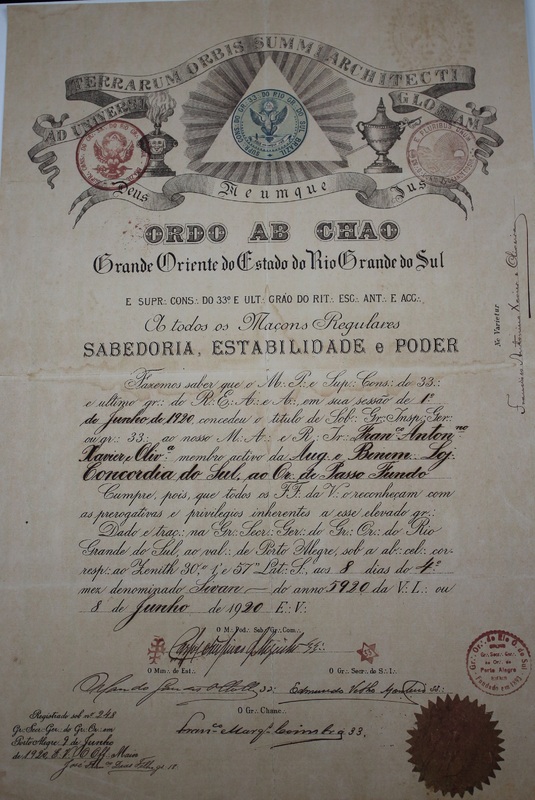 AD UNIVERSI TERRARUM ORBIS SUMMI ARCHITECTI GLORIAM
Deus Meumque Jus
ORDO AB CHAO
Grande Oriente do Estado do Rio Grande do Sul
E SUPR∴ CONS∴ DO 33º E ULT∴ GRÁO DO RIT∴ ESC∴ ANT∴ E ACC∴
A todos os Maçons Regulares
SABEDORIA, ESTABILIDADE e PODER
Fazemos saber que o M∴ P∴ e Sup∴ Cons∴ do 33∴
e ultimo gr∴ do R∴ E∴ A∴ e A∴, em sua sessão de 1º
de Junho de 1920, concedeu o titulo de Sob∴ Gr∴ Insp∴ Ger∴
ou gr∴ 33∴ ao nosso M∴ A∴ e R∴ Ir∴ Franco Anton no
Xavier e Oliva membro activo da Aug∴ e Benem∴ Loj∴
Concordia do Sul, ao Or∴ de Passo Fundo
Cumpre, pois, que todos os F.F. da V∴ o reconheçam com
as prerogativas e privilegios inherentes a esse elevado gr∴
Dado e traç∴ na Gr∴ Secr∴ Ger∴ do Gr∴ Or∴ do Rio
Grande do Sul, ao val∴ de Porto Alegre, sob a ab∴ cel∴ cor-
resp∴ ao Zenith 30º∴ 1' e 57" Lat∴ S∴, aos 8 dias do 4º
mez denominado Sivan — do anno 5920 da V∴ L∴ ou
8 de Junho de 1920 E∴ V∴
O M∴ Pod∴ Sob∴ Gr∴ Com∴
O Min∴ de Est∴
O Gr∴ Secr∴ do S∴ I∴
33∴
33∴
O Gr∴ Chanc∴
Franco Marqs Coimbra 33.
Registrado sob nº 248
Gr∴ Secr∴ Ger∴ do Gr∴ Or∴ em
Porto Alegre 9 de Junho
de 1920
Ne Varietur
Francisco Antonino Xavier e Oliveira
Gr∴ Or∴ do Rio G. do Sul
Gr∴ Secr∴ Ger∴
ao Or∴ de
Porto Alegre
Fundado em 1893